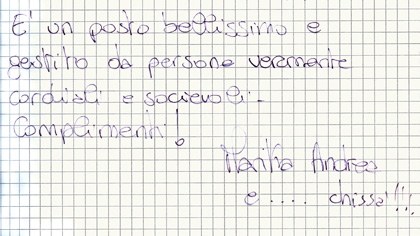 E' un posto bellissimo e
gestito da persone veramente
cordiali e socievoli.
Complimenti!
Marika Andrea
e .... chissà!!!